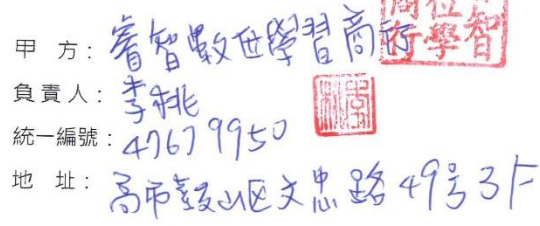 甲 方: 睿智數位學習商行
負責人: 李桃
統一編號: 47679950
地 址: 高市鼓山区文忠路49号3F